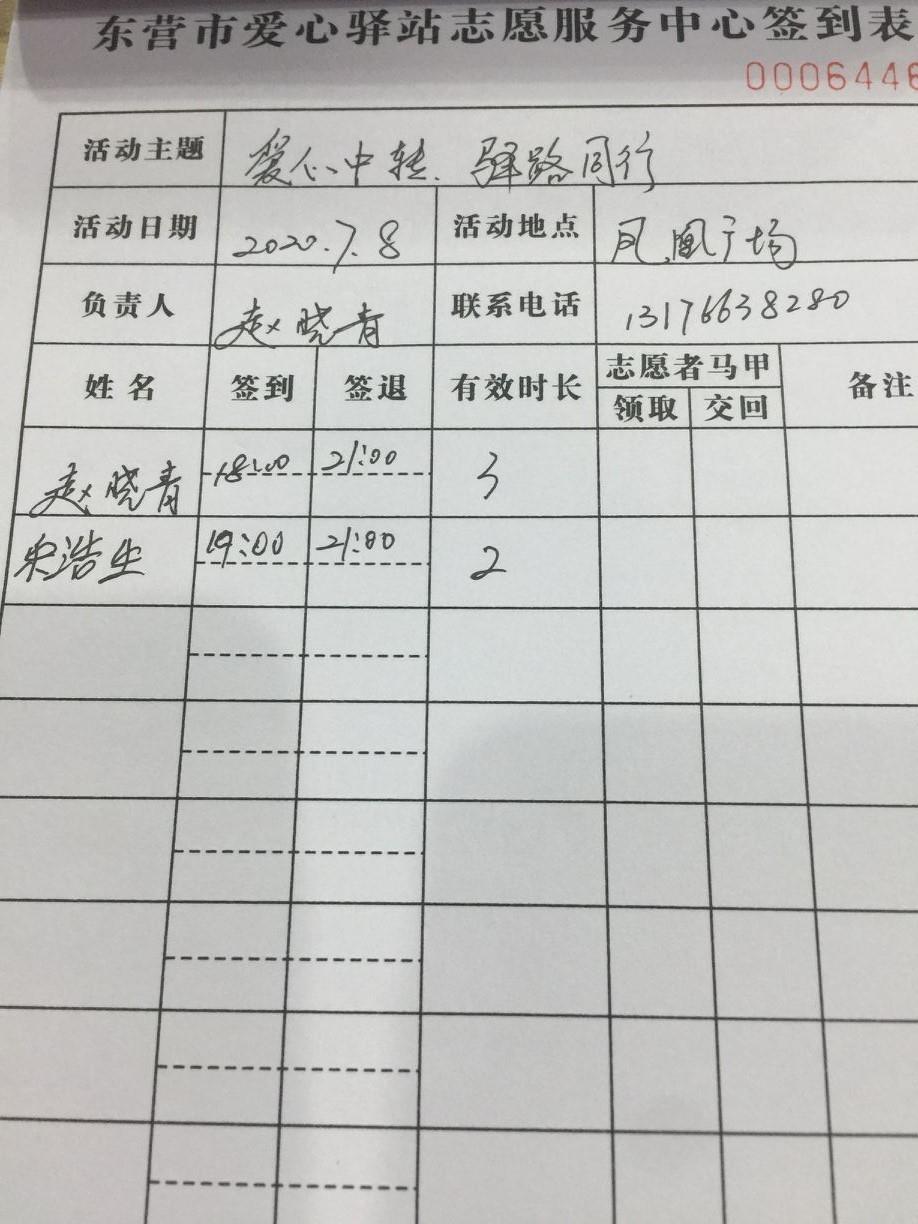 东营市爱心驿站志愿服务中心签到表
0006446
活动主题 爱心中转、驿路同行
活动日期 2020.7.8 活动地点 凤凰广场
负责人 赵晓青 联系电话 13176638280
姓名 签到 签退 有效时长 志愿者马甲 备注
领取 交回
赵晓青 18:00 21:00 3
宋浩生 19:00 21:00 2